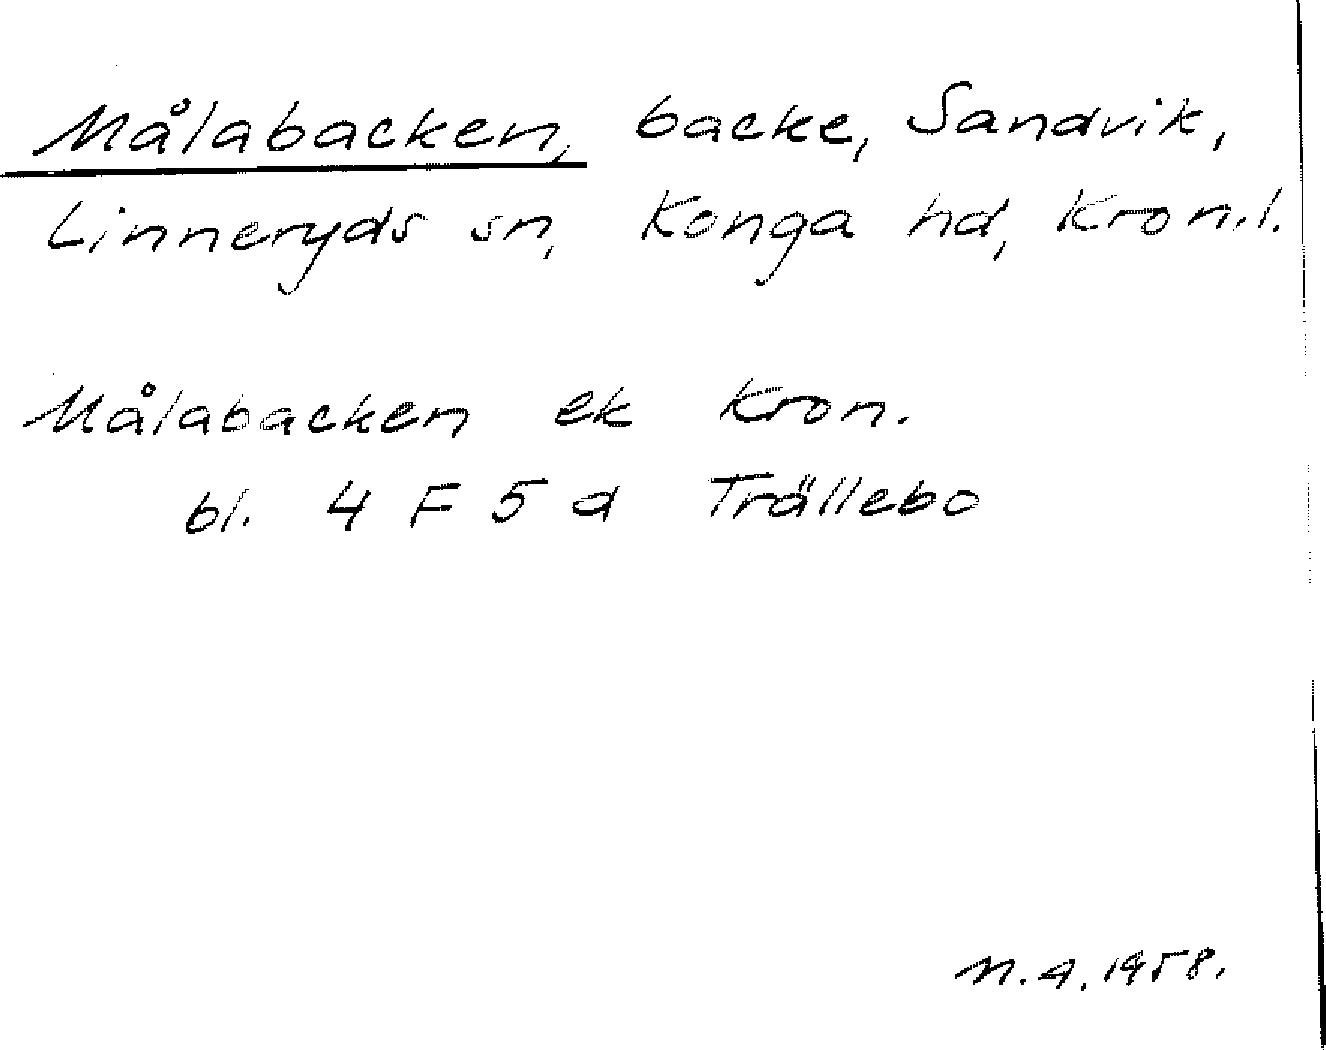 Målabacken, backe, Sandvik,
Linneryds sn, Konga hd, Kron.l.
Målabacken ek Kron.
bl. 4 F 5 d Trällebo
N.A. 1958.